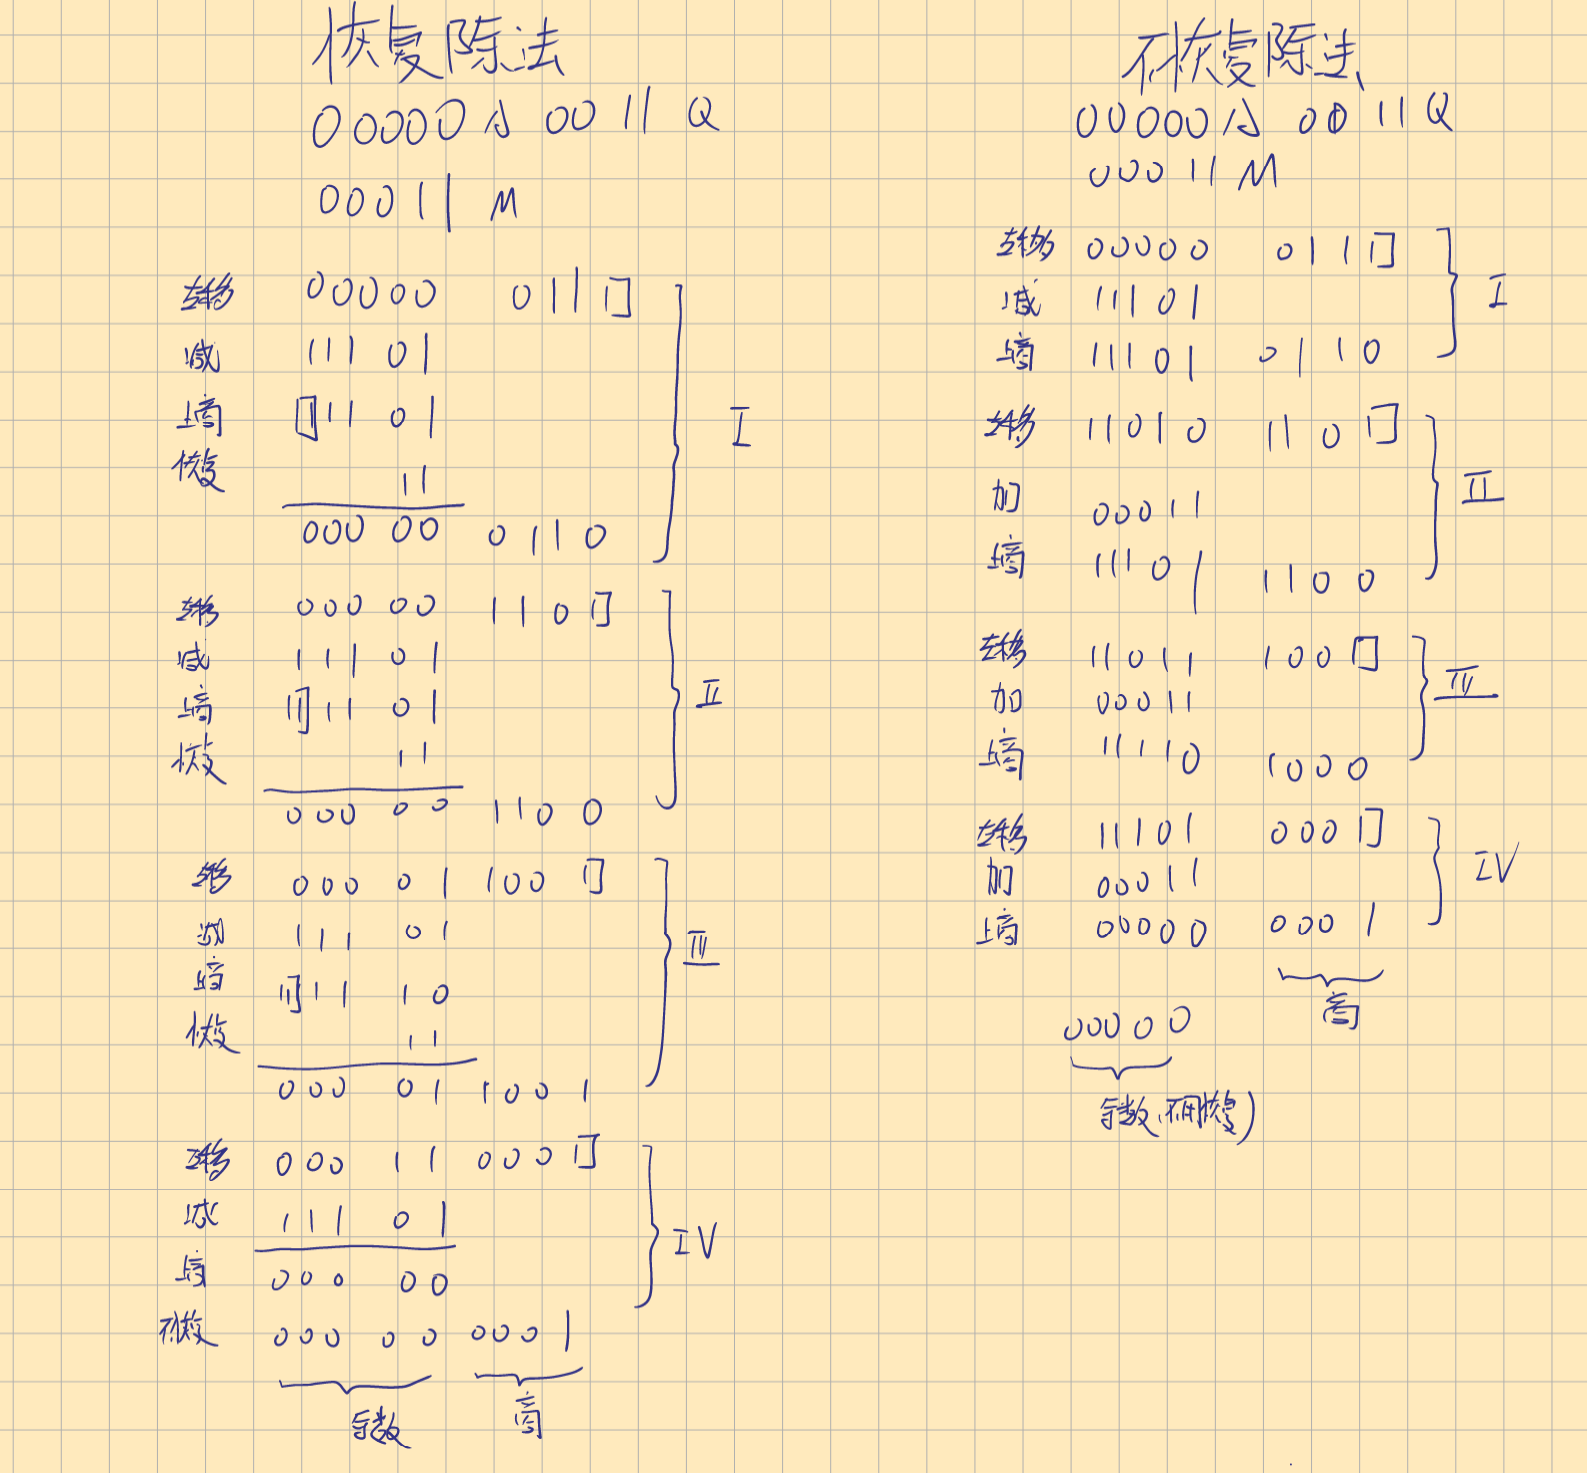 恢复除法
00000 A 0011 Q
00011 M
左移 00000 011□
减 11101
上商 11101
恢复 11
00000 0110
I
左移 00000 110□
减 11101
上商 11101
恢复 11
00000 1100
II
左移 00001 100□
减 11101
上商 11110
恢复 11
00001 1001
III
左移 00011 000□
减 11101
上商 00000
不恢复 00000 0001
IV
余数 商
不恢复除法
00000 A 0011 Q
00011 M
左移 00000 011□
减 11101
上商 11101 0110
I
左移 11010 110□
加 00011
上商 11101 1100
II
左移 11011 100□
加 00011
上商 11110 1000
III
左移 11101 000□
加 00011
上商 00000 0001
IV
商
00000
余数(不用恢复)